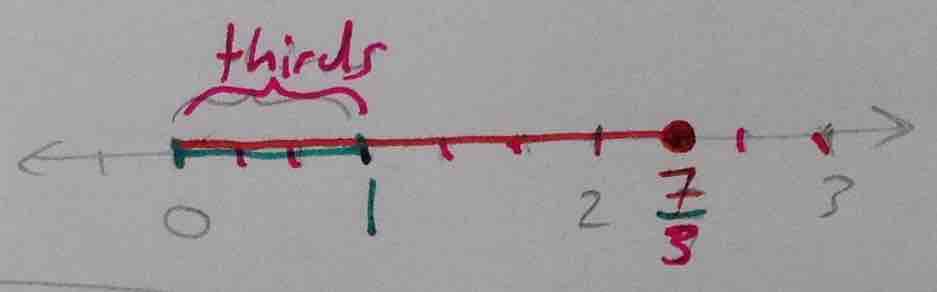 thirds
0 1 2 7/3 3